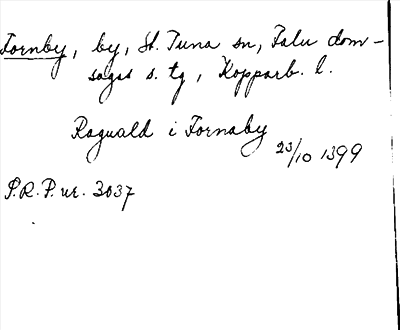 Fornby, by, St. Tuna sn, Falu dom-
sagas s. tg, Kopparb. l.
Raguald i Fornaby
23/10 1399
S.R.P. nr. 3037